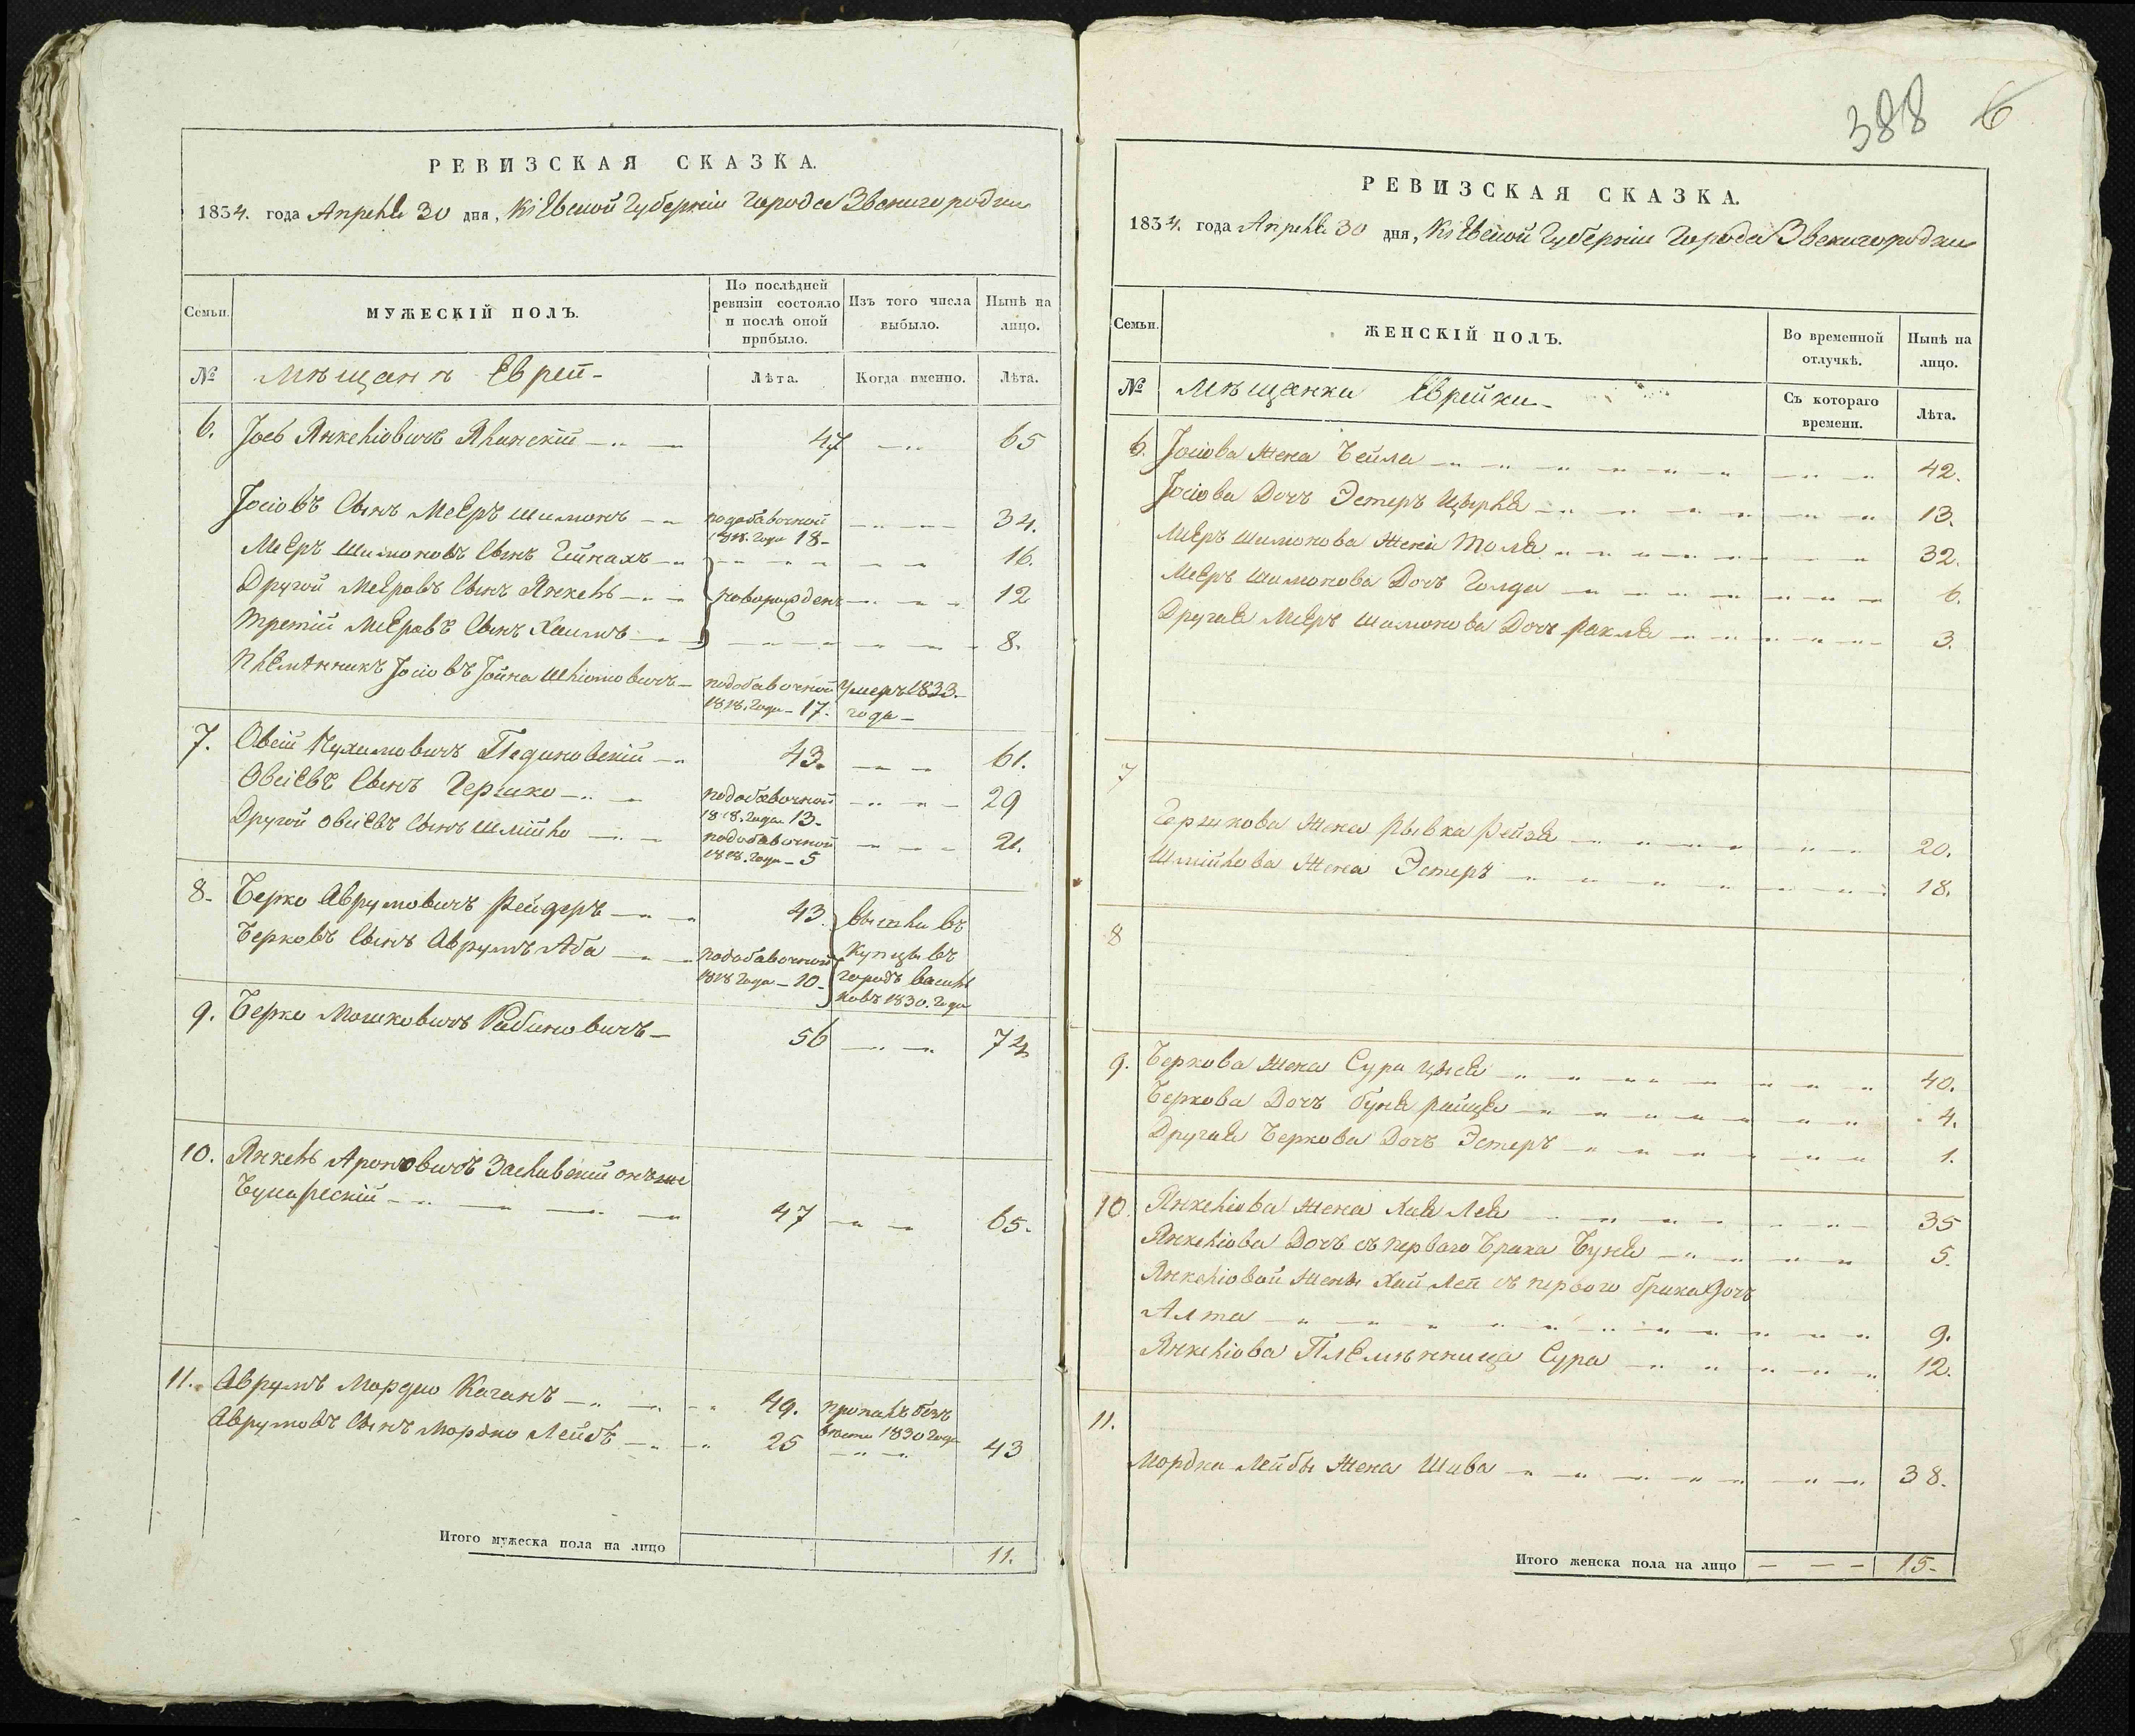 РЕВИЗСКАЯ СКАЗКА.
1834. года Апреля 30 дня, Кіевской Губерніи Города Звенигородки
Семьи. МУЖЕСКІЙ ПОЛЪ. По послѣдней ревизіи состояло и послѣ оной прибыло. Изъ того числа выбыло. Нынѣ на лицо.
№ Мѣщанѣ Евреи - Лѣта. Когда именно. Лѣта.
6. Іось Янкеліовичъ Ялинскій 47 65
Іосіовъ Сынъ Мееръ Шимонъ подобавочной 1818. Года 18 - 34.
Мееръ Шимоновъ Сынъ 16.
Другой Меėровъ Сынъ Янкель новорожденъ 12
Третій Мееровъ Сынъ Хаимъ 8.
Племянникъ Іосіовъ Іойна Шліомовичъ - подобавочной 1818. Года - 17. Умеръ 1833. года -
7. Овсій Нухимовичъ Пединовскій 43. 61.
Овсіевъ Сынъ Гершко подобавочной 1818. Года 13 - 29
Другой Овсіевъ Сынъ Шмійло подобавочной 1818. Года - 5 21.
8. Берко Аврумовичъ Рейдеръ 43. вышли въ
Берковъ Сынъ Аврумъ Аба подобавочной 1818 Года - 10 - купцы въ городъ Васильковъ 1830. Года
9. Берко Мошковичъ Рабиновичъ - 56 74
10. Янкель Ароновичъ Заславскій онъ же
Бухарескій 47 65.
11. Аврумъ Мордко Каганъ 49. пропалъ безъ вѣсти 1830 Года
Аврумовъ Сынъ Мордко Лейбъ 25 43
Итого мужеска пола на лицо 11.
388 6
РЕВИЗСКАЯ СКАЗКА.
1834. года Апреля 30 дня, Кіевской Губерніи Города Звенигородки
Семьи. ЖЕНСКІЙ ПОЛЪ. Во временной отлучкѣ. Нынѣ на лицо.
№ Мѣщанки Еврейки - Съ котораго времени. Лѣта.
6. Іосіова Жена Бейла 42.
Іосіова Дочъ Эстеръ Цырля 13.
Мееръ Шимонова Жена 32.
Мееръ Шимонова Дочъ Голда 6.
Другая Мееръ Шимонова Дочъ Рахля 3.
7
Гершкова Жена Рывка Рейзя 20.
Шмійлова Жена Эстеръ 18.
8
9. Беркова Жена Сура 40.
Беркова Дочъ Буня Райця 4.
Другая Беркова Дочъ Эстеръ 1.
10. Янкеліова Жена Хая Лея 35
Янкеліова Дочъ съ первого Брака Буня 5.
Янкеліовой Жены Хаи Леи съ первого брака Дочъ
Алта 9.
Янкеліова Племѣнница Сура 12.
11.
Мордка Лейбы Жена Шива 38.
Итого женска пола на лицо 15.